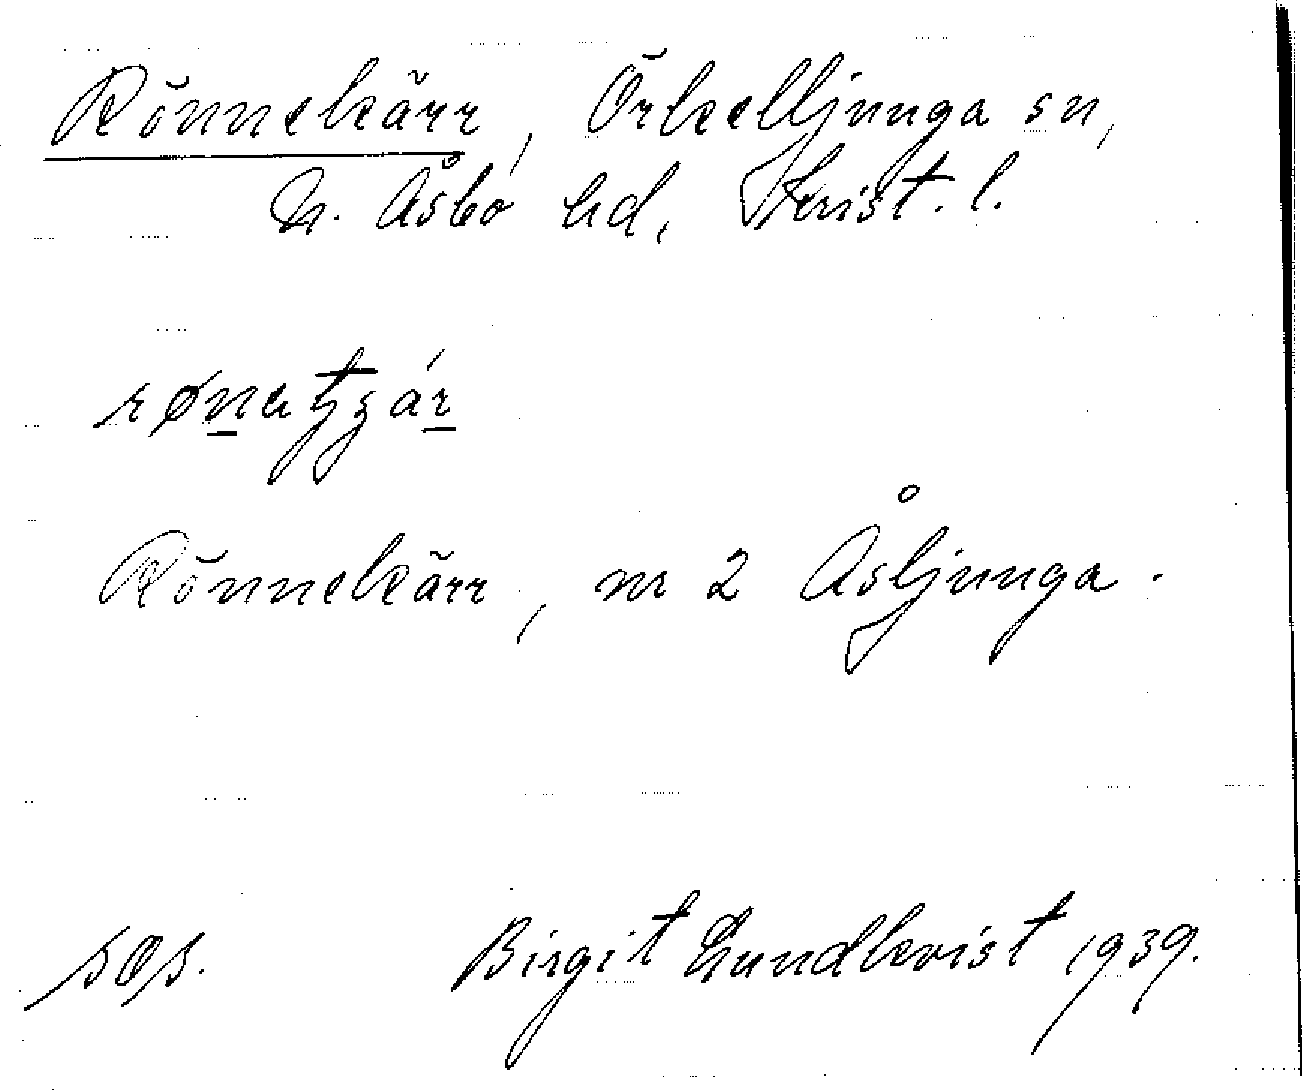 Rönnekärr, Örkelljunga sn,
N. Åsbo hd, Krist. l.
Rönnekärr, nr 2 Åsljunga.
Birgit Lundkvist 1939.